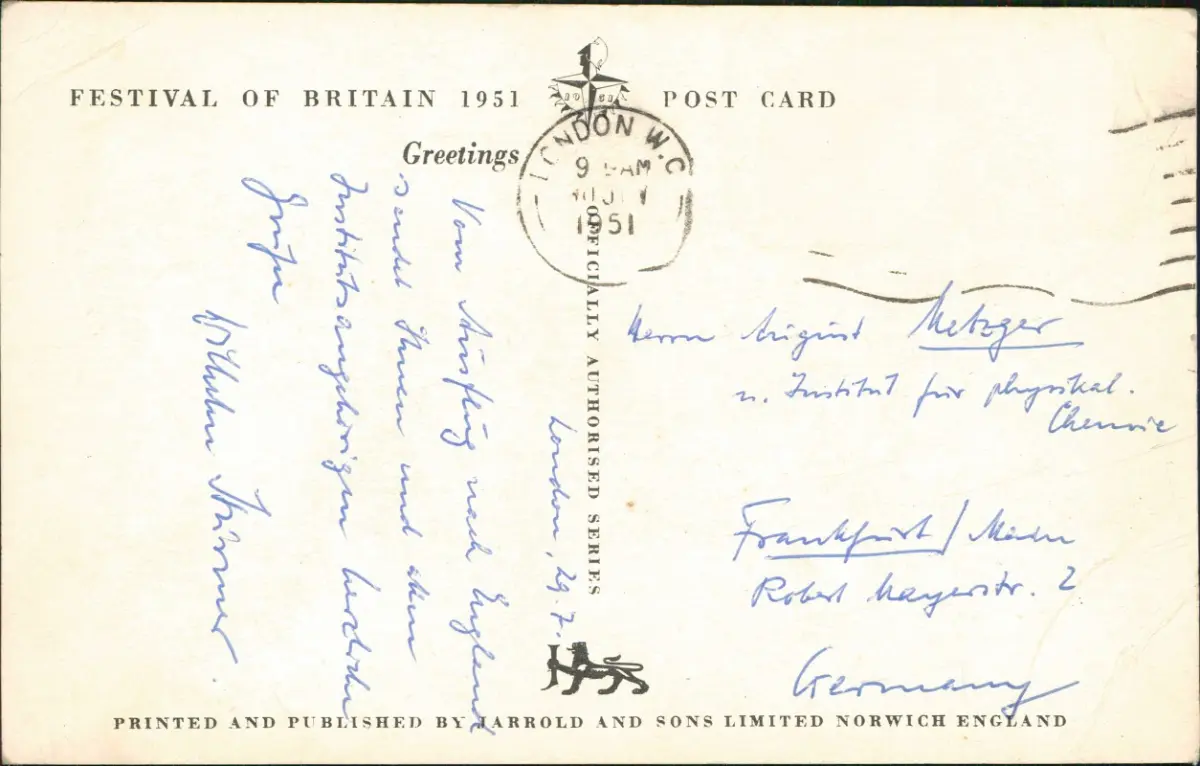 FESTIVAL OF BRITAIN 1951 POST CARD
Greetings
LONDON W.C
9 AM
1951
OFFICIALLY AUTHORISED SERIES
London, 29.7.
Vom Ausflug nach England
sendet Ihnen und allen
Institutsangehörigen herzliche
Grüße
Wilhelm Stürmer.
Herrn August Metzger
u. Institut für physikal.
Chemie
Frankfurt / Main
Robert Mayerstr. 2
Germany
PRINTED AND PUBLISHED BY JARROLD AND SONS LIMITED NORWICH ENGLAND